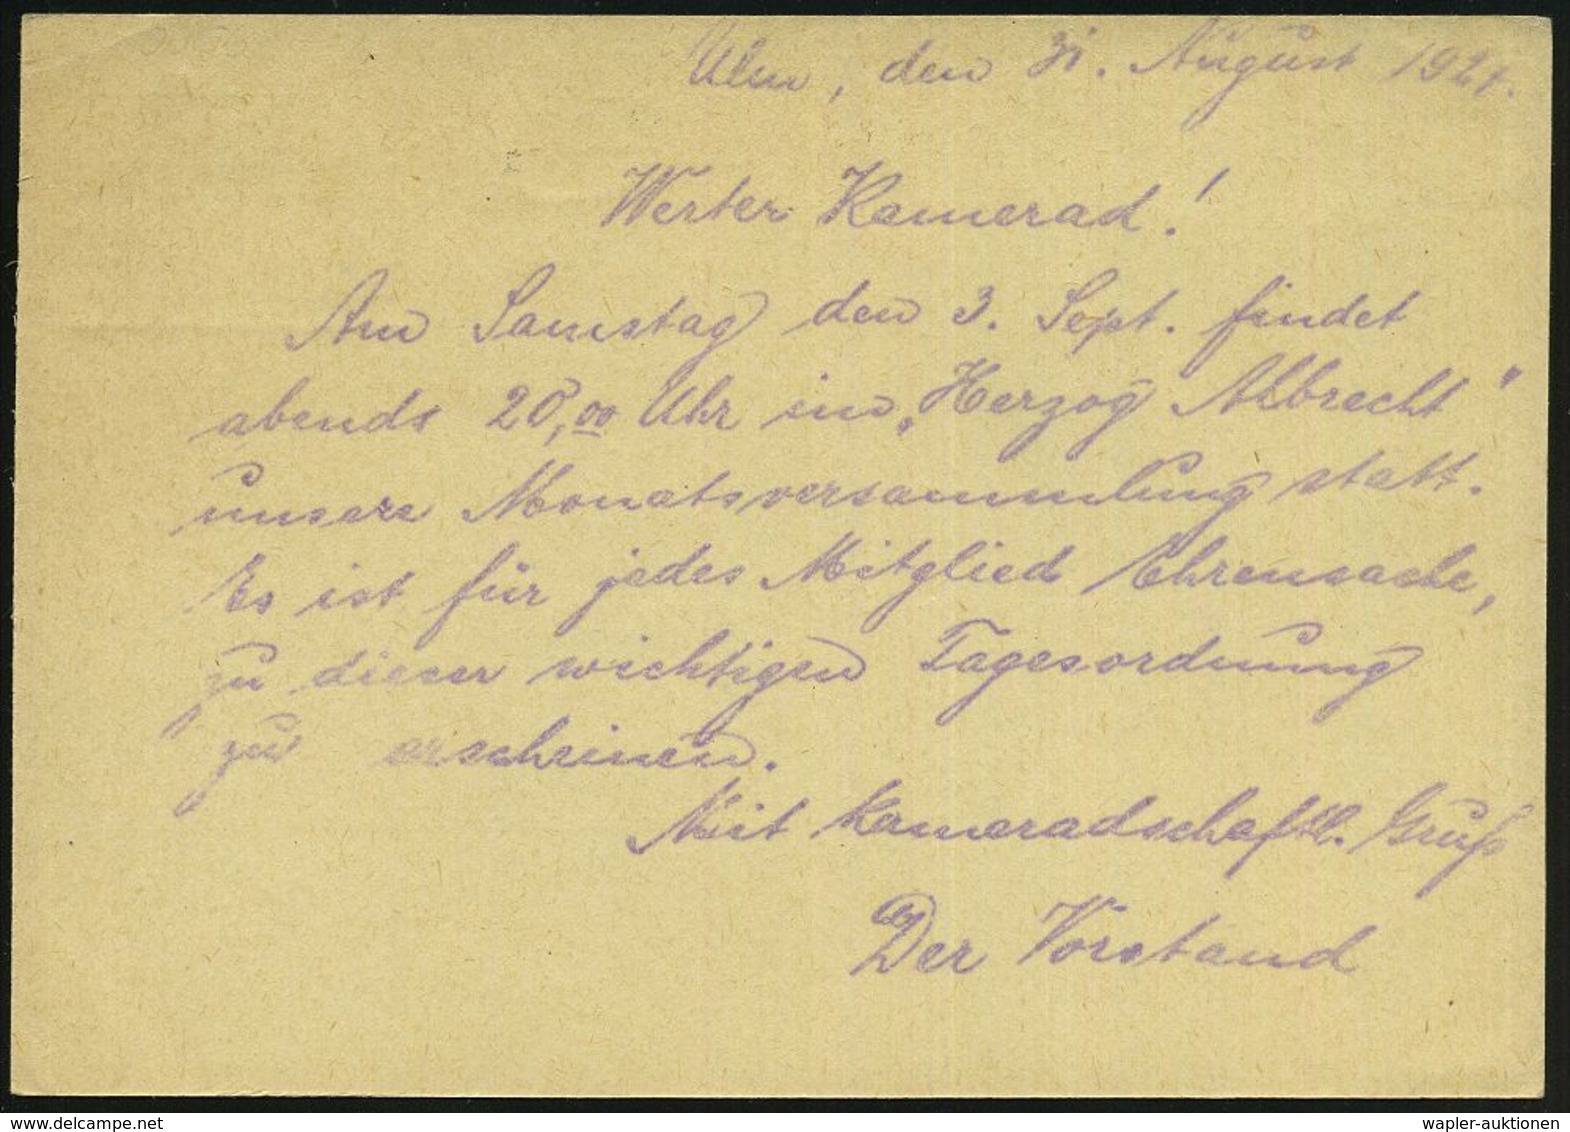 Ulm, den 31. August 1927.
Werter Kamerad!
Am Samstag den 3. Sept. findet
abends 20,00 Uhr im „Herzog Albrecht"
unsere Monatsversammlung statt.
Es ist für jedes Mitglied Ehrensache,
zu dieser wichtigen Tagesordnung
zu erscheinen.
Mit kameradschaftl. Gruß
Der Vorstand
wapler-auktionen